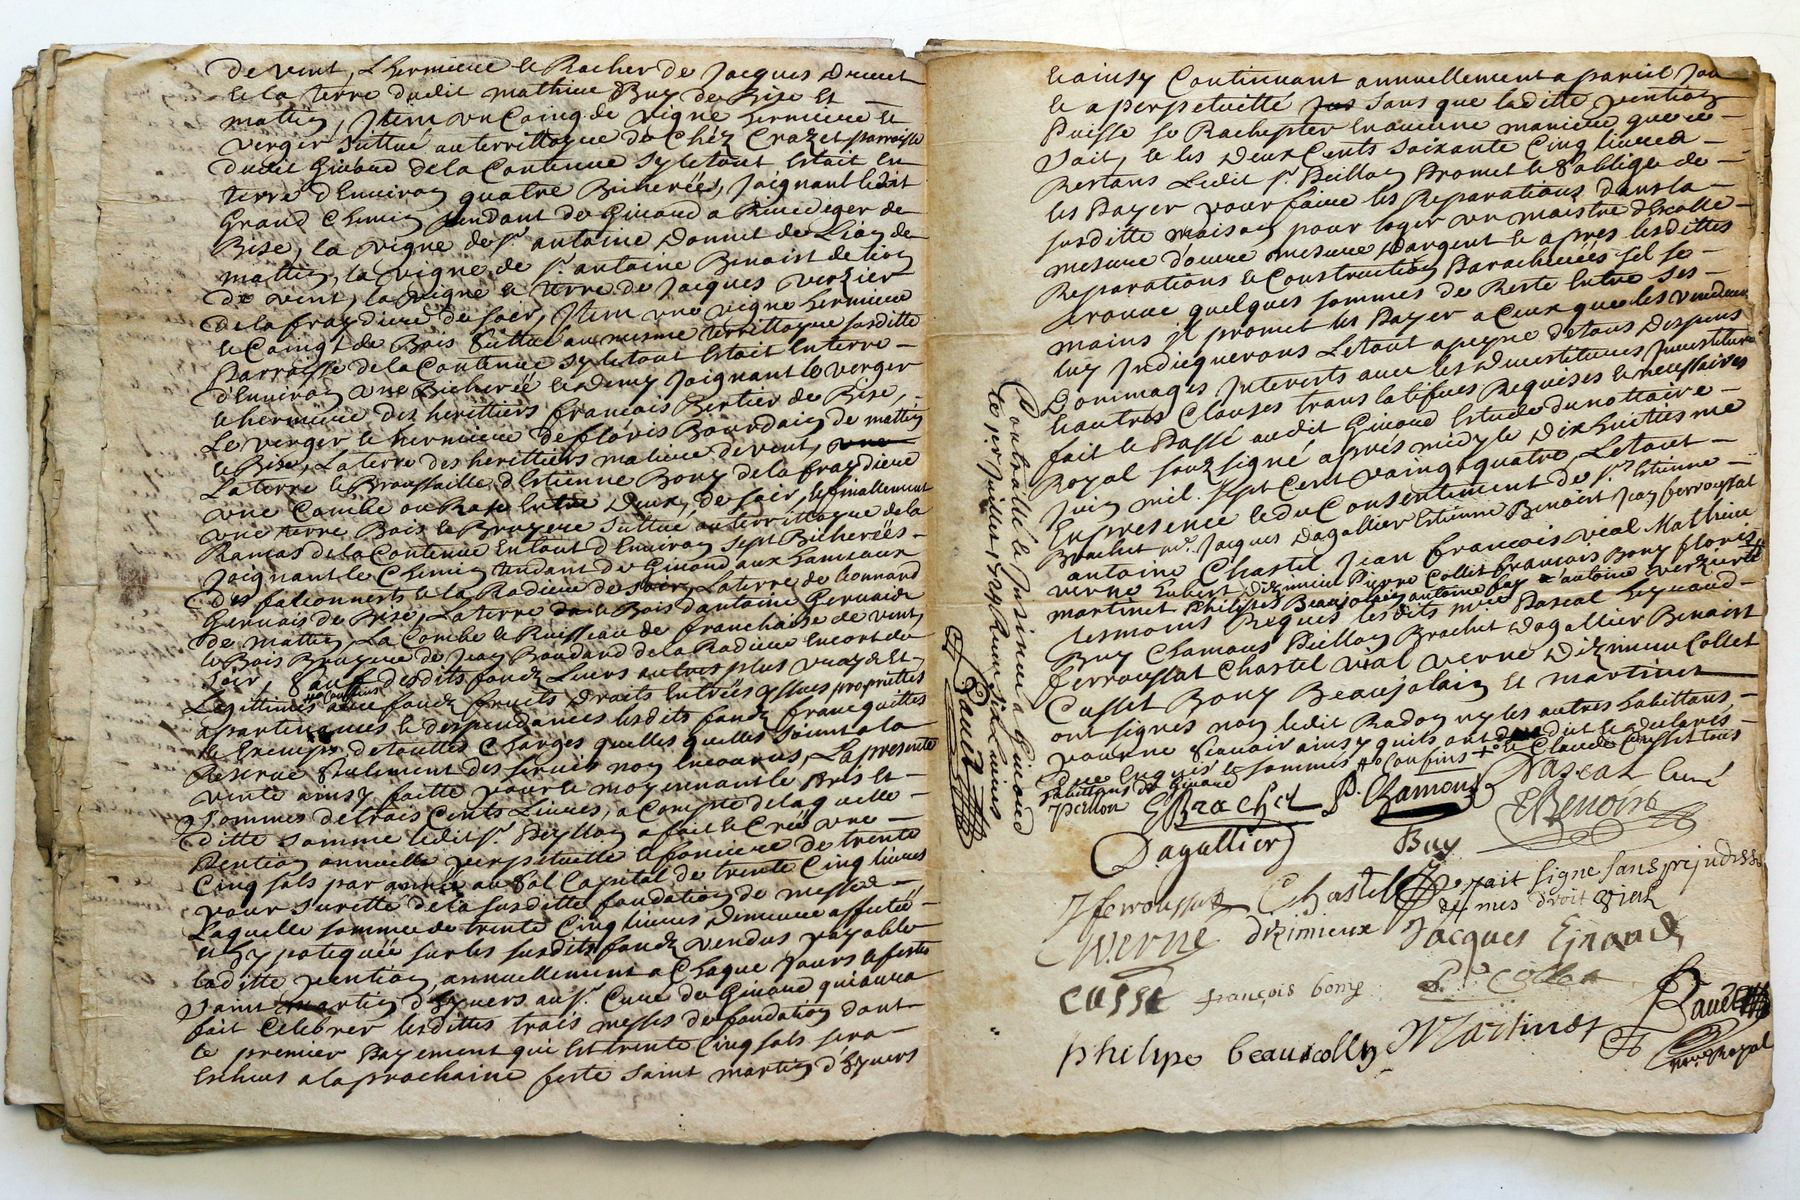 de vent, L'hermiere le Rocher de Jacques
Et la terre dudit mathieu Buy de Bise Et
mattin, Item un Coing de vigne hermiere et
verger Sittué au territtoyre de Chéz Crozet parroisse
dudit Givord de la Contenue sy le tout Estait En
terre d'Environ quatre Bicherées, Joignant ledit
Grand Chemin tendant de Givord a Rivedeger de
Bise, la vigne de sr antoine Donnet de Lion de
mattin, la vigne de sr antoine Benoist de lion
de vent, la vigne et terre de Jacques verzier
de la fraydiere de soir, Item une vigne hermiere
et Coingt de Bois Sittué au mesme territtoyre susditte
Parroisse de la Contenue sy le tout Estait En terre
d'Environ une Bicherée et demy Joignant le verger
et hermiere des herittiers francois Bertier de Bise,
Le verger et hermiere de floris Bourdain de mattin
et Bise, La terre des herittiers de vent,
La terre et Broussaille d'Estienne Bony de la fraydiere
une Combe ou Raze Entre Deux, de soir, et finallement
une terre Bois et Bruyere Sittué au territtoyre de la
Ramas de la Contenue En tout d'Environ sept Bicherées
Joignant le Chemin tendant de Givord aux hameaux
des falconnerts et la Radiere de soir, La terre de Leonnard
Gervais de Bise, La terre et Bois d'antoine Gervais
de mattin, La Combe et Ruisseau de franchaise de vent,
le Bois Bruyere de Jean Baudrand de la Radiere Encort de
soir Sauf desdits fondz Leurs autres plus vrays Et
Legittimes avec fondz fruits Droits Entrées yssues proprietes
apartenances et despendances lesdits fondz francquettes
et Exempts de touttes Charges quelles quelles soient a la
Reserve Seulement des servis non Encourus, La presente
vente ainsy faitte pour et moyennant le Pris Et
Sommes de trois Cents Livres, a Compte de laquelle
ditte somme ledit sr Peillon a fait et Creé une
Pention annuelle perpetuelle et fonciere de trente
Cinq sols par année au Sol Capital de trente Cinq livres
pour surette de la susditte fondation de messes
Laquelle somme de trente Cinq livres Demeure affectée
et hypotequée sur les susdits fondz vendus payable
laditte pention annuellement a Chaque Jours et feste
Saint martin d'hyvers au sr Curé de Givord qui aura
fait Celebrer lesdittes trois messes de fondation dont
le premier Payement qui Est trente Cinq sols sera
Escheus a la prochaine feste Saint martin d'hyvers
et ainsy Continuant annuellement a pareil Jour
et a perpetuitté sans que laditte pention
Puisse se Rachepter En aucune maniere que ce
Soit, et les Deux Cents soixante Cinq livres
Restans Ledit sr Peillon Promet et S'oblige de
les Payer pour faire les Reparations dans la
susditte maison pour loger un maistre d'Escolle
mesure d'ouvre mesure d'argent et apres lesdittes
Reparations et Construction Parachevées s'il se
trouve quelques sommes de Reste Entre ses
mains il promet les Payer a Ceux que les vendeurs
luy Indicquerons Le tout a peyne de tous Despens
Dommages Interests avec les Devestitures Investitures
et autres Clauses translatifves Requises et necessaires
fait et Passé audit Givord Estude du nottaire
Royal soubz signé aprés midy le Dix huitiesme
Juin mil sept Cent vaingt quatre, Le tout
En presence et du Consentement de srs Estienne
Brachet me Jacques Dagallier Estienne Benoist Jean ferroussat
antoine Chastel Jean francois vial Mathieu
verne hubert Dizimieu Pierre Collet francois Bony floris
martinet Philippes Beaujolain antoine Buy et antoine verzier
tesmoins Requis lesdits mre Pascal
Buy Chamous Peillon Brachet Dagallier Benoist
ferroussat Chastel vial verne Dizimieu Collet
Cusset Bony Beaujolain et martinet
ont signés non ledit Radon ny les autres habittans
pour ne scavoir ainsy quils ont dit et declarés
de ce Enquis et sommés et Claude Cusset tous
habittans de Givord
peillon EBrachet P. Chamous Pascal Curé
Dagallier Buy EBenoist
Jferroussat Chastel Je sait signe sans prejudisse
de mes droit vial
Mverne dizimieux Jacques Giraud
CUSSE françois bony P Collet
philipe beaucollin Martinet Bauet
not Royal
Controllé et Insinué a Givord
le 1er Juillet 1724 Receu six livres
Bauet